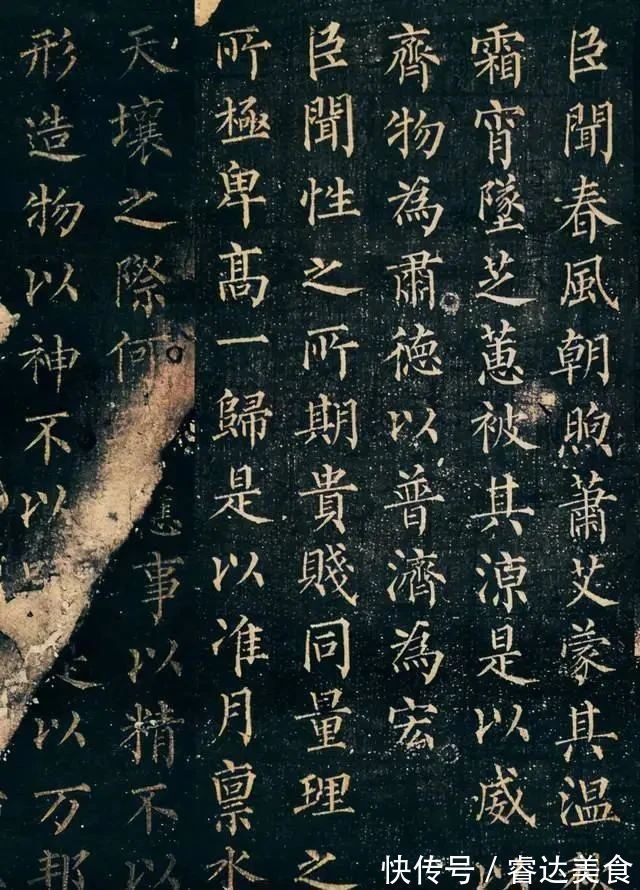 臣聞春風朝煦蕭艾蒙其温
霜宵墜芝蕙被其涼是以威
齊物為肅德以普濟為宏
臣聞性之所期貴賤同量理之
所極卑高一歸是以准月稟水
天壤之際何事以精不以
形造物以神不以是以万邦
快传号 / 睿达美食